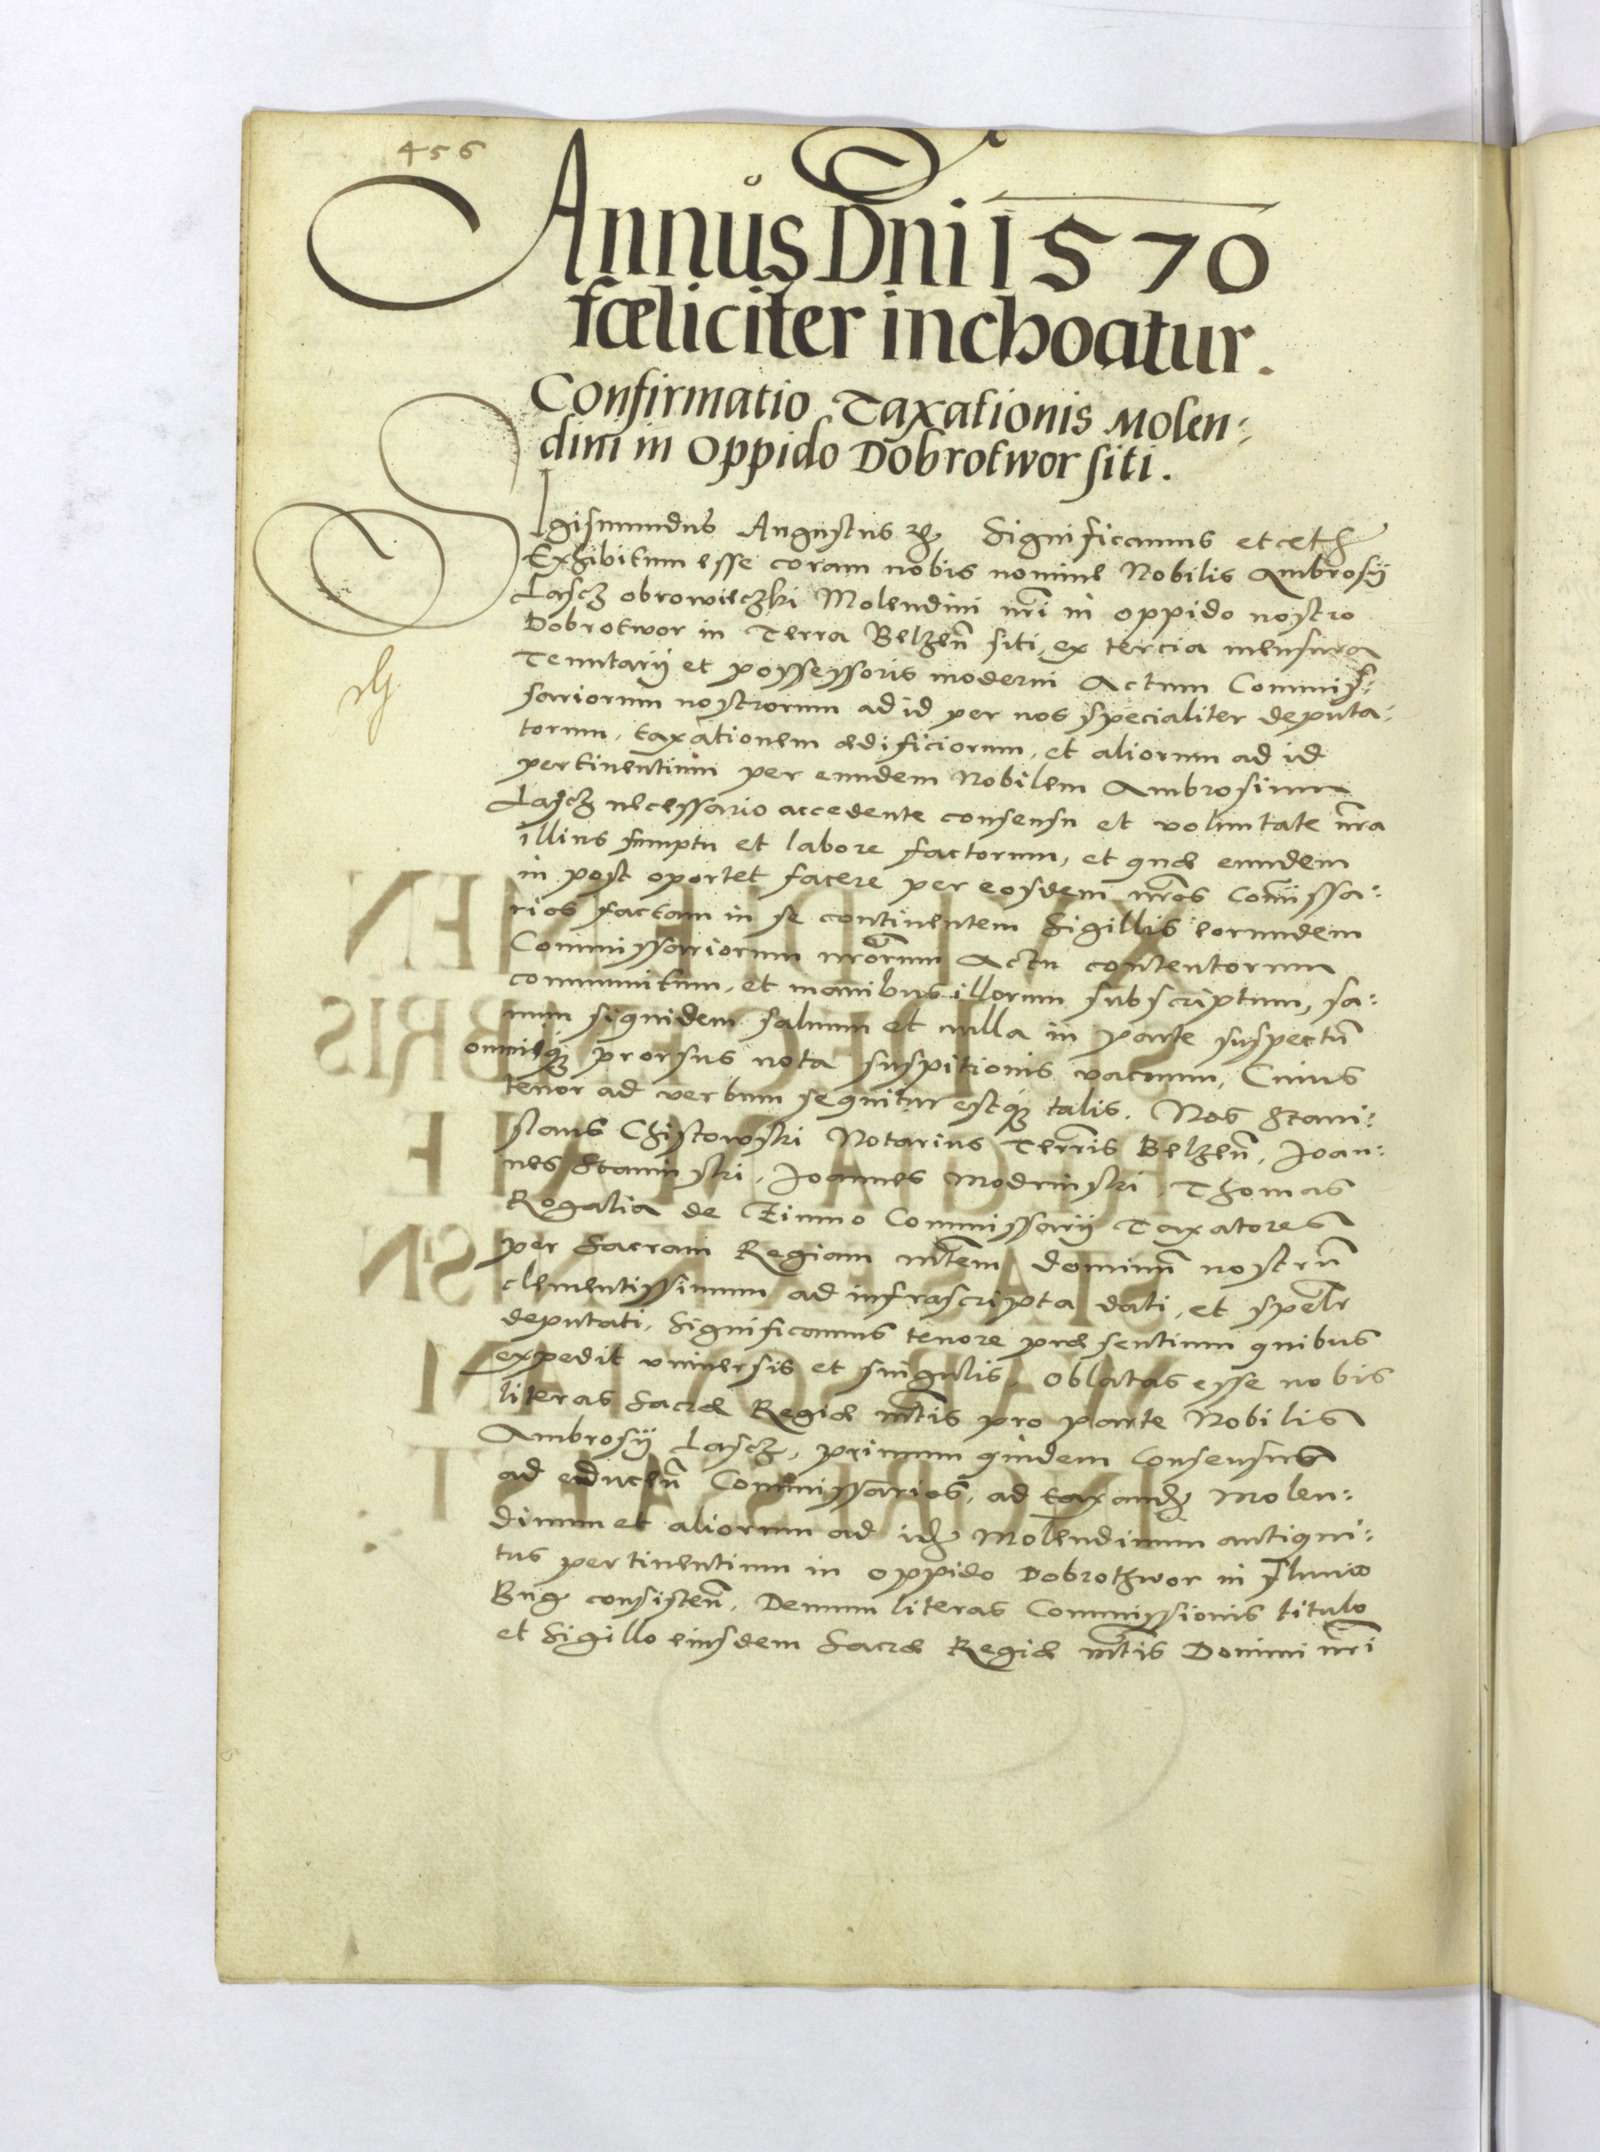 456
Annus Dni 1570
fœliciter inchoatur.
Confirmatio Taxationis Molen=
dini in Oppido Dobrotwor siti.
Sigismundus Augustus etc. Significamus etceth
Exhibitum esse coram nobis nomine Nobilis Ambrosij
Lascz obrowieczki Molendini nri in oppido nostro
Dobrotwor in Terra Belzen siti, ex tercia mensura
Tenutarij et possessoris moderni Actum Commis=
sariorum nostrorum ad id per nos specialiter deputa=
torum, taxationem ædificiorum, et aliorum ad id
pertinentium per eundem Nobilem Ambrosium
Lascz necessario accedente consensu et voluntate nra
illius sumptu et labore factorum, et quæ eundem
in post oportet facere per eosdem nros Comissa=
rios factam in se continentem Sigillis eorundem
Commissariorum nrorum Actu contentorum
communitum, et manibus illorum subscriptum, sa=
num siquidem saluum et nulla in parte suspectu
omnique prorsus nota suspitionis vacuum, Cuius
tenor ad verbum sequitur estque talis. Nos Stani=
slaus Chistowski Notarius Terris Belzen, Joan=
nes Staminski, Joannes Modrinski, Thomas
Rogalia de Zimno Commissarij Taxatores
per Sacram Regiam mtem dominu nostru
clementissimum ad infrascripta dati, et spelr
deputati, Significamus tenore præsentium quibus
expedit vniuersis et singulis, Oblatas esse nobis
literas Sacræ Regiæ mtis pro parte Nobilis
Ambrosij Lascz, primum quidem Consensus
ad educen Commissarios, ad taxand Molen=
dinum et aliorum ad id Molendinum antiqui=
tus pertinentium in oppido Dobrothwor in fluuio
Bug consisten, Demum literas Commissionis titulo
et Sigillo eiusdem Sacræ Regiæ mtis Domini nri